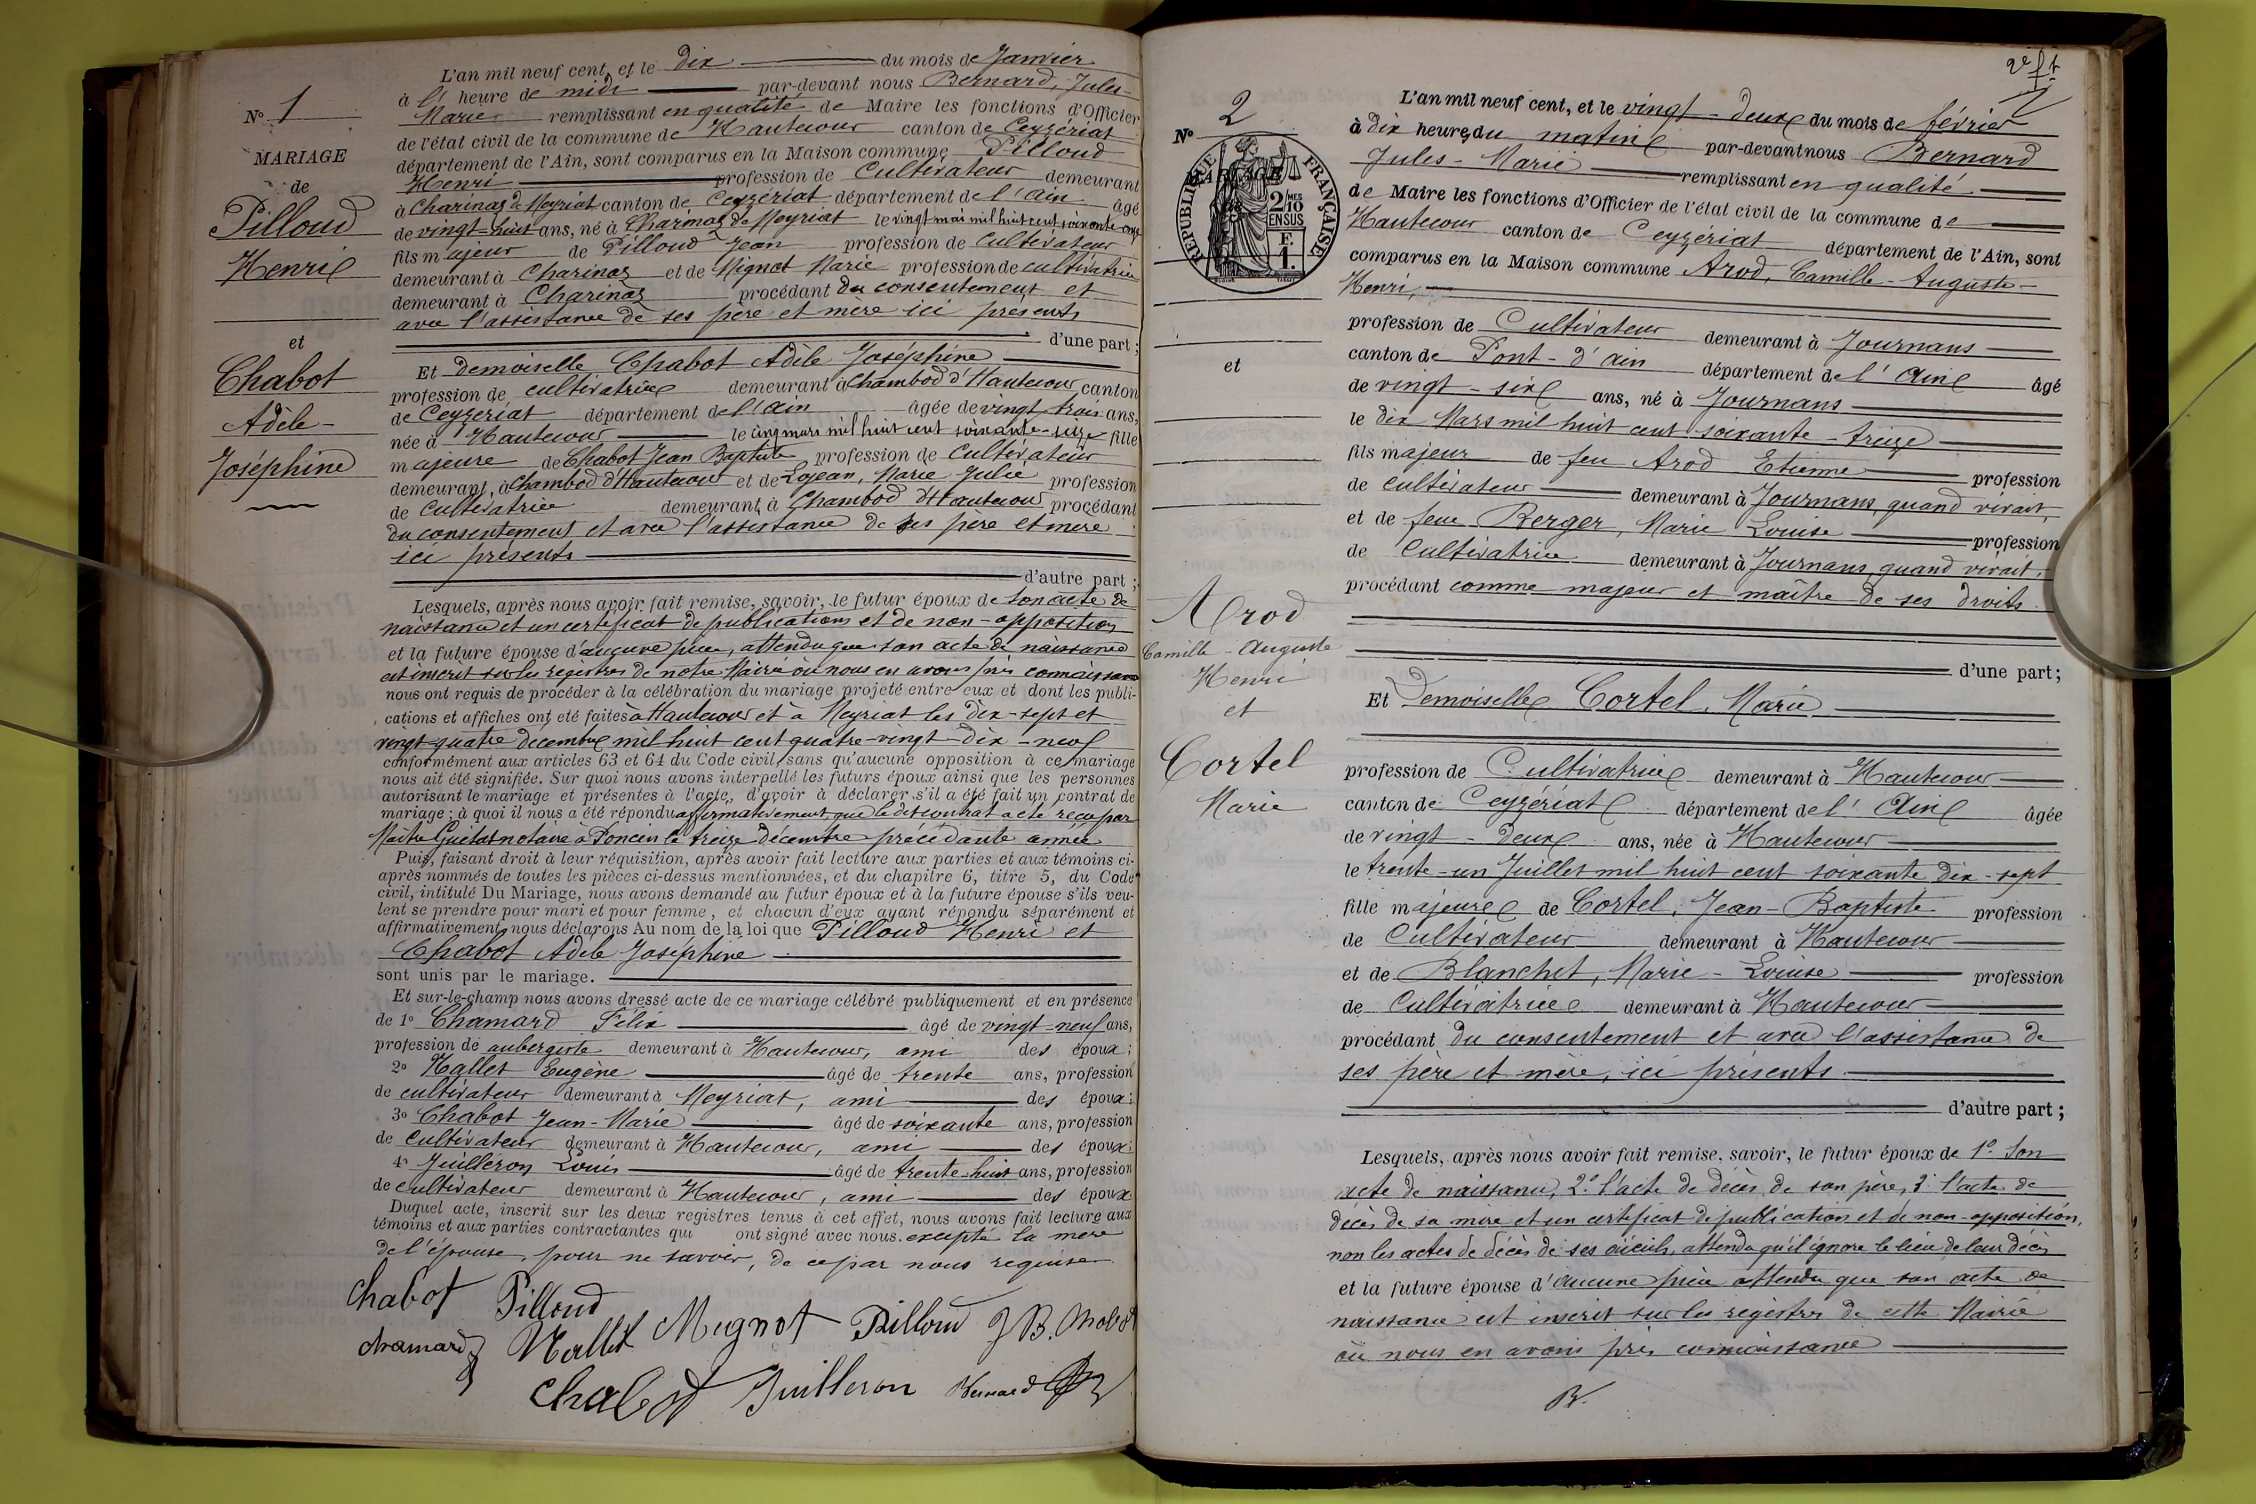 L'an mil neuf cent, et le dix du mois de Janvier
à l' heure de midi par-devant nous Bernard, Jules-
Marie remplissant en qualité de Maire les fonctions d'Officier
de l'état civil de la commune de Hautecour canton de Ceyzériat
département de l'Ain, sont comparus en la Maison commune Pilloud
Henri profession de Cultivateur demeurant
à Charinaz de Neyriat canton de Ceyzériat département de l'Ain âgé
de vingt-huit ans, né à Charinaz de Neyriat le vingt mai mil huit cent soixante-onze
fils majeur de Pilloud Jean profession de Cultivateur
demeurant à Charinaz et de Mignot Marie profession de cultivatrice
demeurant à Charinaz procédant du consentement et
avec l'assistance de ses père et mère ici présents
d'une part ;
Et Demoiselle Chabot Adèle Joséphine
profession de cultivatrice demeurant à Chambod d'Hautecour canton
de Ceyzériat département de l'Ain âgée de vingt trois ans,
née à Hautecour le cinq mars mil huit cent soixante-seize fille
majeure de Chabot Jean Baptiste profession de Cultivateur
demeurant à Chambod d'Hautecour et de Lojean, Marie Julie profession
de Cultivatrice demeurant à Chambod d'Hautecour procédant
du consentement et avec l'assistance de ses père et mère
ici présents
d'autre part ;
Lesquels, après nous avoir fait remise, savoir, le futur époux de son acte de
naissance et un certificat de publications et de non-opposition
et la future épouse d'aucune pièce, attendu que son acte de naissance
est inscrit sur les registres de notre Mairie où nous en avons pris connaissance
nous ont requis de procéder à la célébration du mariage projeté entre eux et dont les publi-
cations et affiches ont été faites à Hautecour et à Neyriat les dix-sept et
vingt-quatre décembre mil huit cent quatre-vingt-dix-neuf
conformément aux articles 63 et 64 du Code civil, sans qu'aucune opposition à ce mariage
nous ait été signifiée. Sur quoi nous avons interpellé les futurs époux ainsi que les personnes
autorisant le mariage et présentes à l'acte, d'avoir à déclarer s'il a été fait un contrat de
mariage ; à quoi il nous a été répondu affirmativement que ledit contrat a été reçu par
Maître Guitat notaire à Poncin le treize décembre précédante année
Puis, faisant droit à leur réquisition, après avoir fait lecture aux parties et aux témoins ci-
après nommés de toutes les pièces ci-dessus mentionnées, et du chapitre 6, titre 5, du Code
civil, intitulé Du Mariage, nous avons demandé au futur époux et à la future épouse s'ils veu-
lent se prendre pour mari et pour femme, et chacun d'eux ayant répondu séparément et
affirmativement, nous déclarons Au nom de la loi que Pilloud Henri et
Chabot Adèle Joséphine
sont unis par le mariage.
Et sur-le-champ nous avons dressé acte de ce mariage célébré publiquement et en présence
de 1º Chamard Félix âgé de vingt-neuf ans,
profession de aubergiste demeurant à Hautecour, ami des époux ;
2º Hallet Eugène âgé de trente ans, profession
de cultivateur demeurant à Neyriat, ami des époux ;
3º Chabot Jean-Marie âgé de soixante ans, profession
de Cultivateur demeurant à Hautecour, ami des époux ;
4º Juilleron Louis âgé de trente-huit ans, profession
de cultivateur demeurant à Hautecour, ami des époux
Duquel acte, inscrit sur les deux registres tenus à cet effet, nous avons fait lecture aux
témoins et aux parties contractantes qui ont signé avec nous. excepté la mère
de l'épouse, pour ne savoir, de ce par nous requise.
Chabot Pilloud
chamard Hallet Mignot Pilloud J B. Chabot
Chabot Juilleron Bernard
Nº 1
MARIAGE
de
Pilloud
Henri
et
Chabot
Adèle-
Joséphine
2e ft
Nº 2
RÉPUBLIQUE FRANÇAISE
MARIAGE
2/10 MES
EN SUS
F.
1.
et
Arod
Camille-Auguste
Henri
et
Cortel
Marie
L'an mil neuf cent, et le vingt-deux du mois de février
à dix heures du matin par-devant nous Bernard
Jules-Marie remplissant en qualité
de Maire les fonctions d'Officier de l'état civil de la commune de
Hautecour canton de Ceyzériat département de l'Ain, sont
comparus en la Maison commune Arod, Camille-Auguste-
Henri,
profession de Cultivateur demeurant à Journans
canton de Pont-d'ain département de l'Ain âgé
de vingt-six ans, né à Journans
le dix Mars mil huit cent soixante-treize
fils majeur de feu Arod Etienne profession
de cultivateur demeurant à Journans, quand vivait,
et de feue Berger, Marie Louise profession
de Cultivatrice demeurant à Journans, quand vivait,
procédant comme majeur et maître de ses droits.
d'une part ;
Et Demoiselle Cortel, Marie
profession de Cultivatrice demeurant à Hautecour
canton de Ceyzériat département de l'Ain âgée
de vingt-deux ans, née à Hautecour
le trente-un Juillet mil huit cent soixante dix-sept
fille majeure de Cortel, Jean-Baptiste profession
de Cultivateur demeurant à Hautecour
et de Blanchet, Marie-Louise profession
de Cultivatrice demeurant à Hautecour
procédant du consentement et avec l'assistance de
ses père et mère, ici présents
d'autre part ;
Lesquels, après nous avoir fait remise, savoir, le futur époux de 1º Son
acte de naissance, 2º l'acte de décès de son père, 3º l'acte de
décès de sa mère et un certificat de publication et de non-opposition,
non les actes de décès de ses aïeuls, attendu qu'il ignore le lieu de leur décès
et la future épouse d'aucune pièce attendu que son acte de
naissance est inscrit sur les registres de cette Mairie
où nous en avons pris connaissance
B.